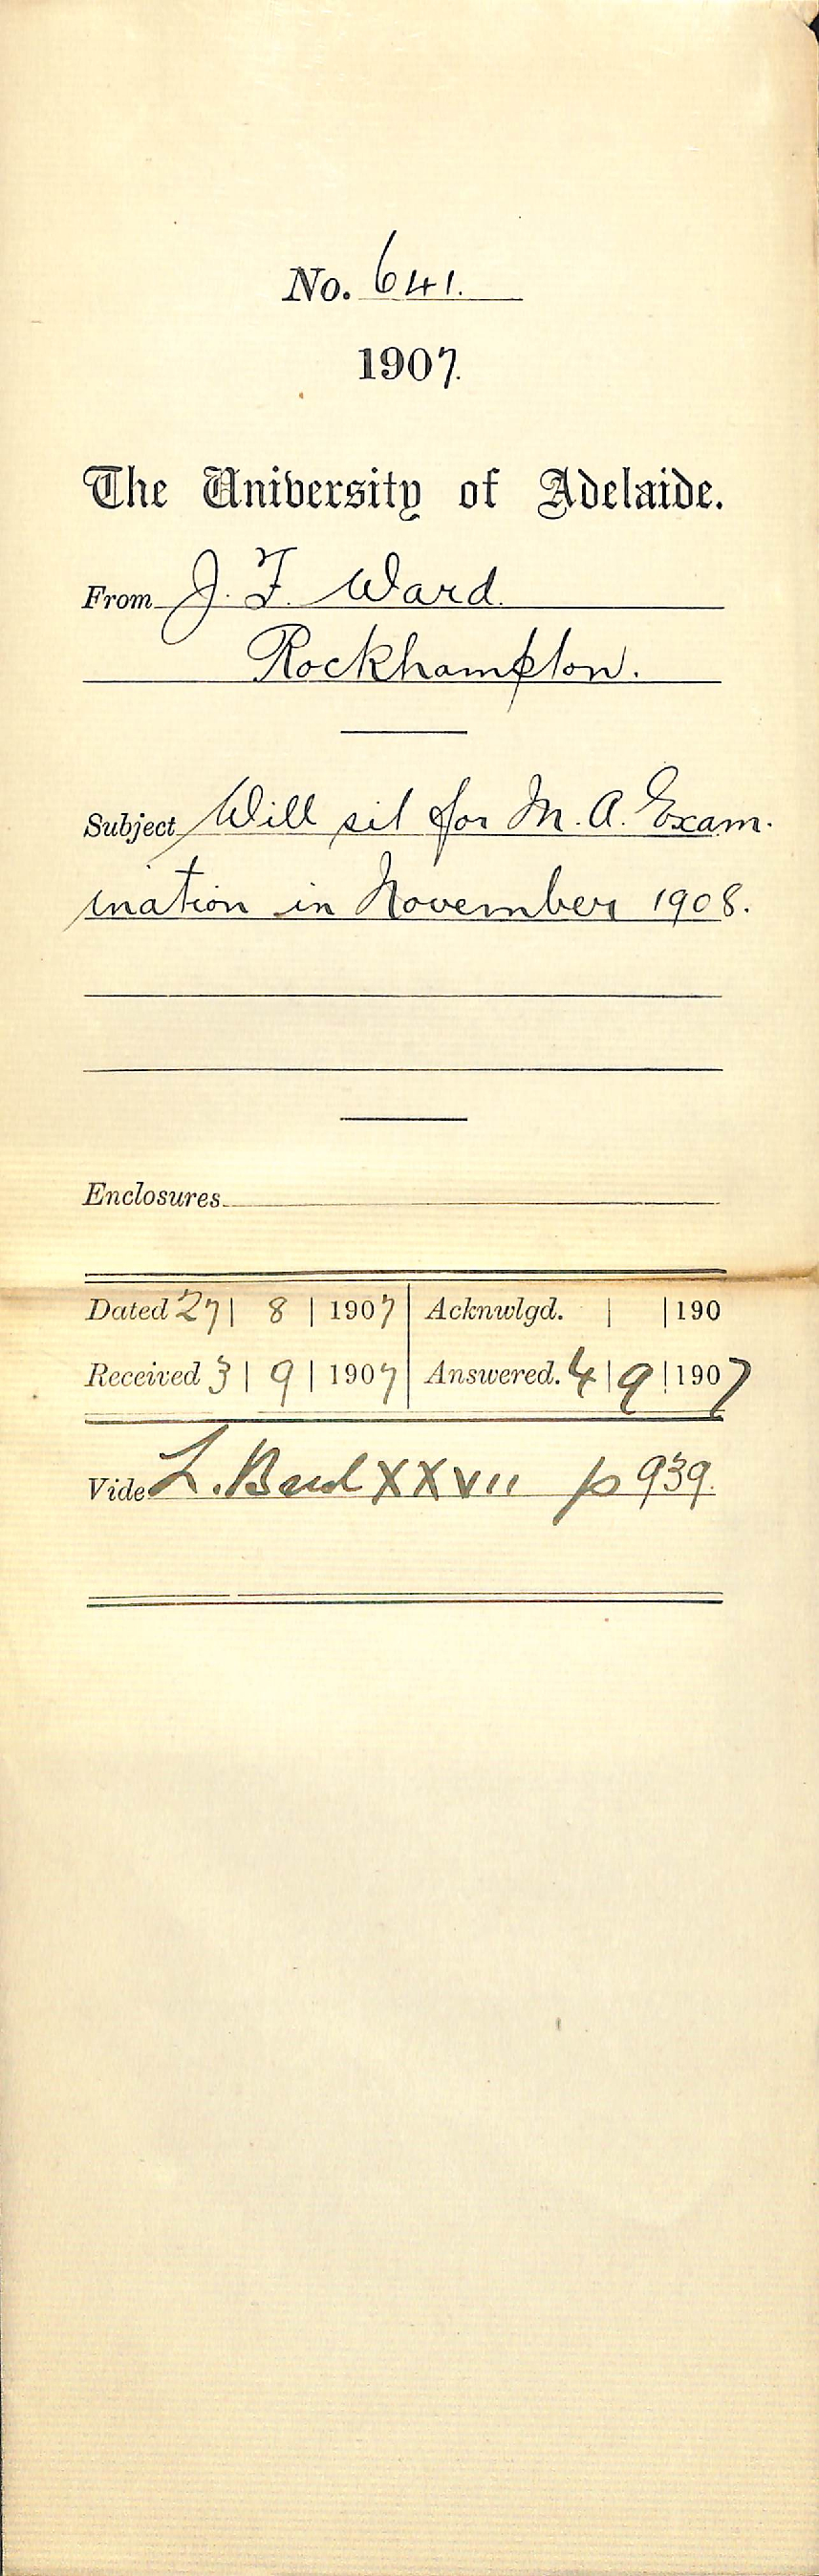 No. 641.
1907.
The University of Adelaide.
From J. F. Ward.
Rockhampton.
Subject Will sit for M. A. Exam.
ination in November 1908.
Enclosures
Dated 27 | 8 | 1907 | Acknwlgd. | | 190
Received 3 | 9 | 1907 | Answered. 4 | 9 | 1907
Vide L. XXVII p 939.